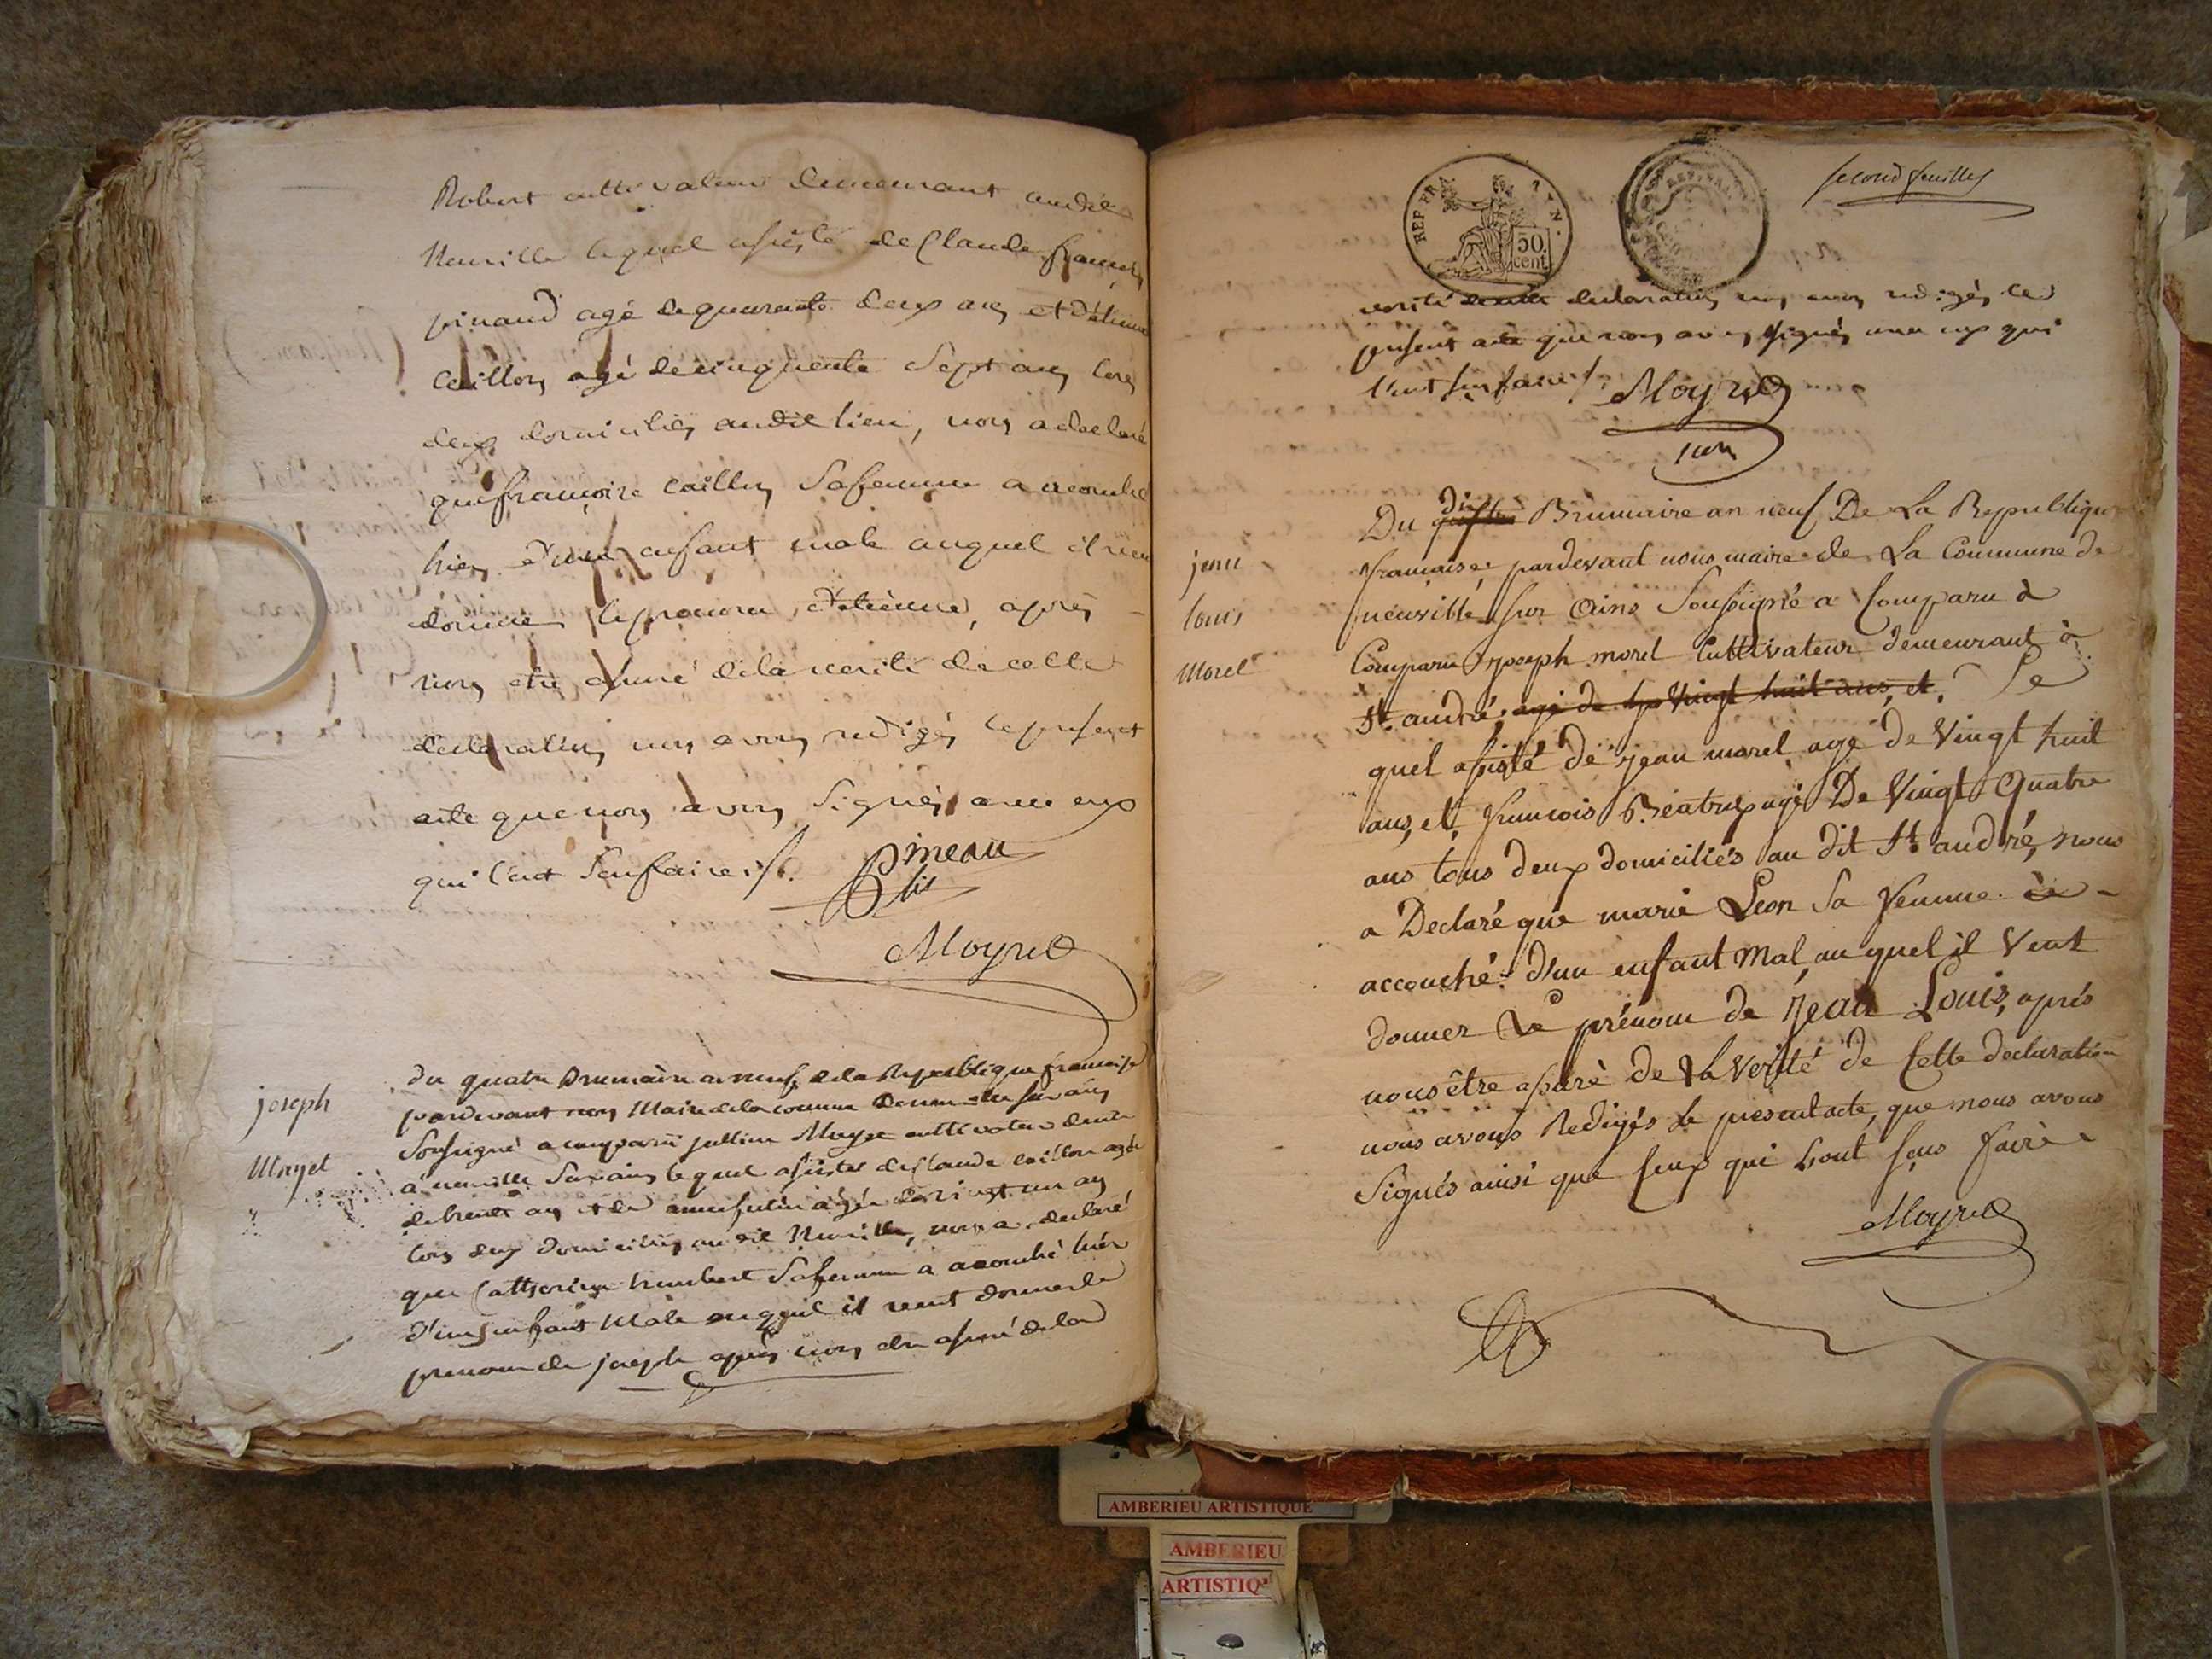 Robert cultivateur demeurant audit
Neuville lequel assisté de Claude françois
pinaud agé de quarente deux ans et d'étienne
Caillon agé de cinquente Sept ans tous
deux domiciliés audit lieu, nous a declaré
que françoise caillon Sa femme a accouché
hier d'un enfant male auquel il veut
donner le prenom d'etienne, après
nous etre assuré de la verité de cette
declaration nous avons redigés le present
acte que nous avons Signés avec eux
qui l'ont Sçu faire ./.
Pineau
fils
Moyret
joseph
Mayet
du quatre Brumaire an neuf de la Republique française
pardevant nous Maire de la commune de neuville sur ains
Soussigné a comparu jullien Mayet cultivateur demt
à neuville Sur ains lequel assister de Claude caillon agé
de trente ans et de agée de vingt un ans
tous deux domiciliés audit Neuville, nous a declaré
que Catherine humbert Sa femme a accouché hier
d'un enfant Male auquel il veut donner le
prenom de joseph après nous etre assuré de la
REP FRA
50.
cent.
second feuillet
verité de cette declaration nous avons redigés le
present acte que nous avons signés avec eux qui
l'ont sçu faire ./. Moyret
Du dix Brumaire an neuf De La Republique
française pardevant nous maire de La Commune de
neuville sur Ains Soussigné a Comparu à
Comparu joseph morel Cultivateur demeurant à
St. andré, agé de vingt huit ans, et, Le
quel assisté de jean morel agé de Vingt huit
ans, et, francois Béatrix agé De Vingt Quatre
ans tous deux domiciliés au dit St. andré, nous
a Declaré que marie Leon Sa femme à
accouché d'un enfant Mal, au quel il Veut
donner Le prénom de jean Louis, aprés
nous être assuré de La Verité de Cette declaration
nous avons Redigés Le present acte, que nous avons
Signés ainsi que Ceux qui L'ont sçus faire
jean
louis
Morel
Moyret
AMBERIEU ARTISTIQUE
AMBERIEU
ARTISTIQ